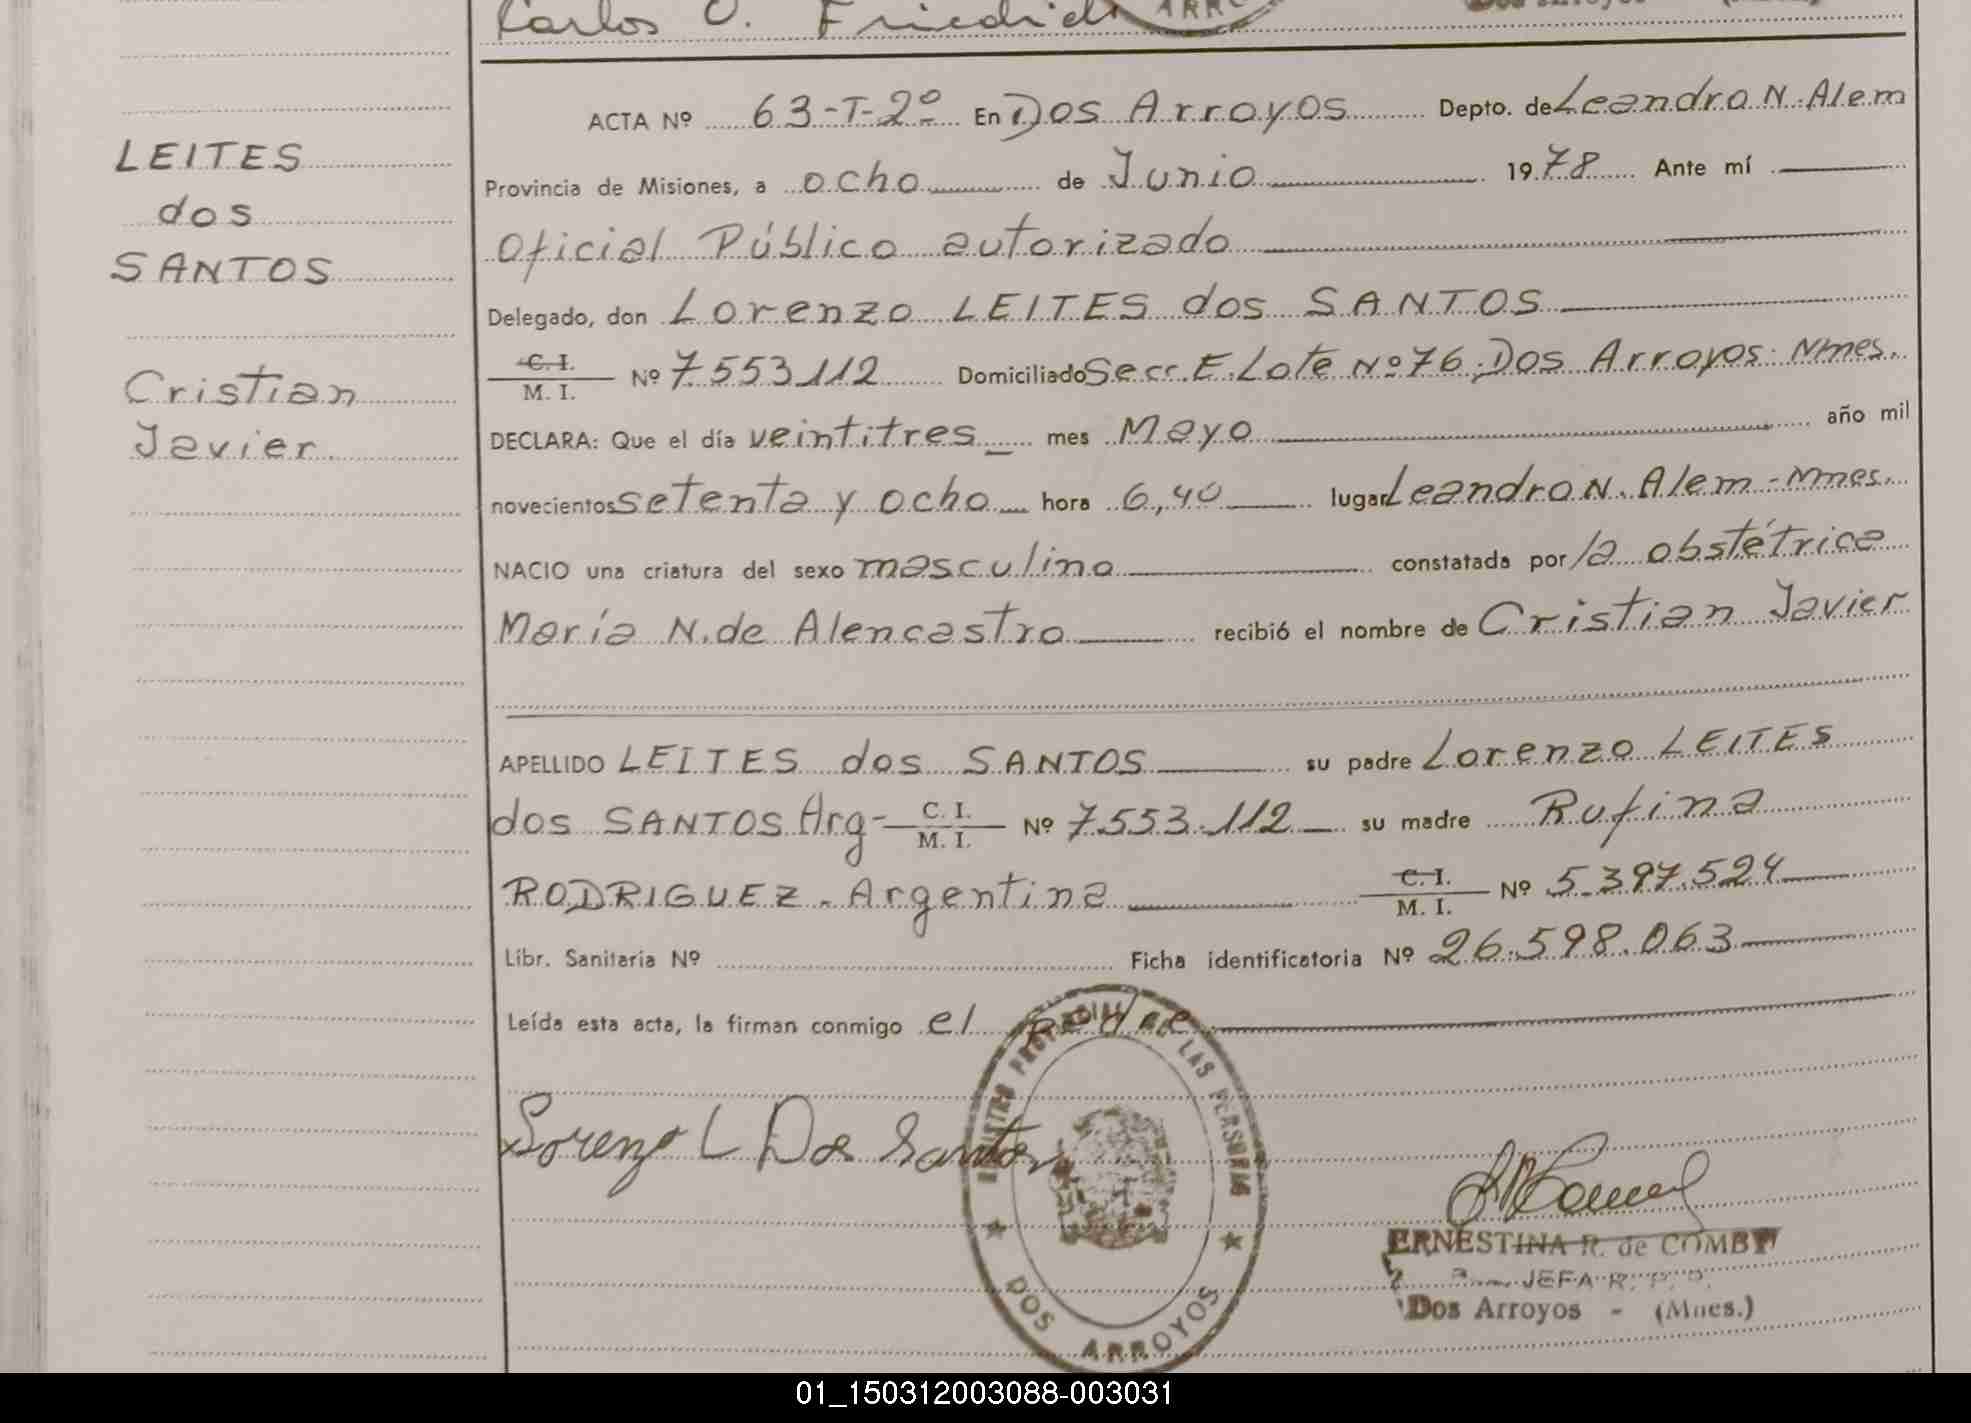 Carlos O. Friedrich
ARRO
Dos Arroyos
ACTA Nº 63-T-2º En Dos Arroyos Depto. de Leandro N. Alem
Provincia de Misiones, a ocho de Junio 1978 Ante mí
Oficial Público autorizado
Delegado, don Lorenzo LEITES dos SANTOS
C. I.
M. I. Nº 7553112 Domiciliado Secc. E. Lote Nº 76. Dos Arroyos. Mnes.
DECLARA: Que el día veintitres mes Mayo año mil
novecientos setenta y ocho hora 6,40 lugar Leandro N. Alem - Mnes.
NACIO una criatura del sexo masculino constatada por la obstétrica
María N. de Alencastro recibió el nombre de Cristian Javier
APELLIDO LEITES dos SANTOS su padre Lorenzo LEITES
dos SANTOS Arg- C. I.
M. I. Nº 7553.112 su madre Rufina
RODRIGUEZ. Argentina C. I.
M. I. Nº 5.397.524
Libr. Sanitaria Nº Ficha identificatoria Nº 26.598.063
Leída esta acta, la firman conmigo el padre
Lorenzo L Dos Santos
REGISTRO PROVINCIAL DE LAS PERSONAS
DOS ARROYOS
ERNESTINA R. de COMBY
JEFA R. P. P.
Dos Arroyos - (Mnes.)
LEITES
dos
SANTOS
Cristian
Javier
01_150312003088-003031